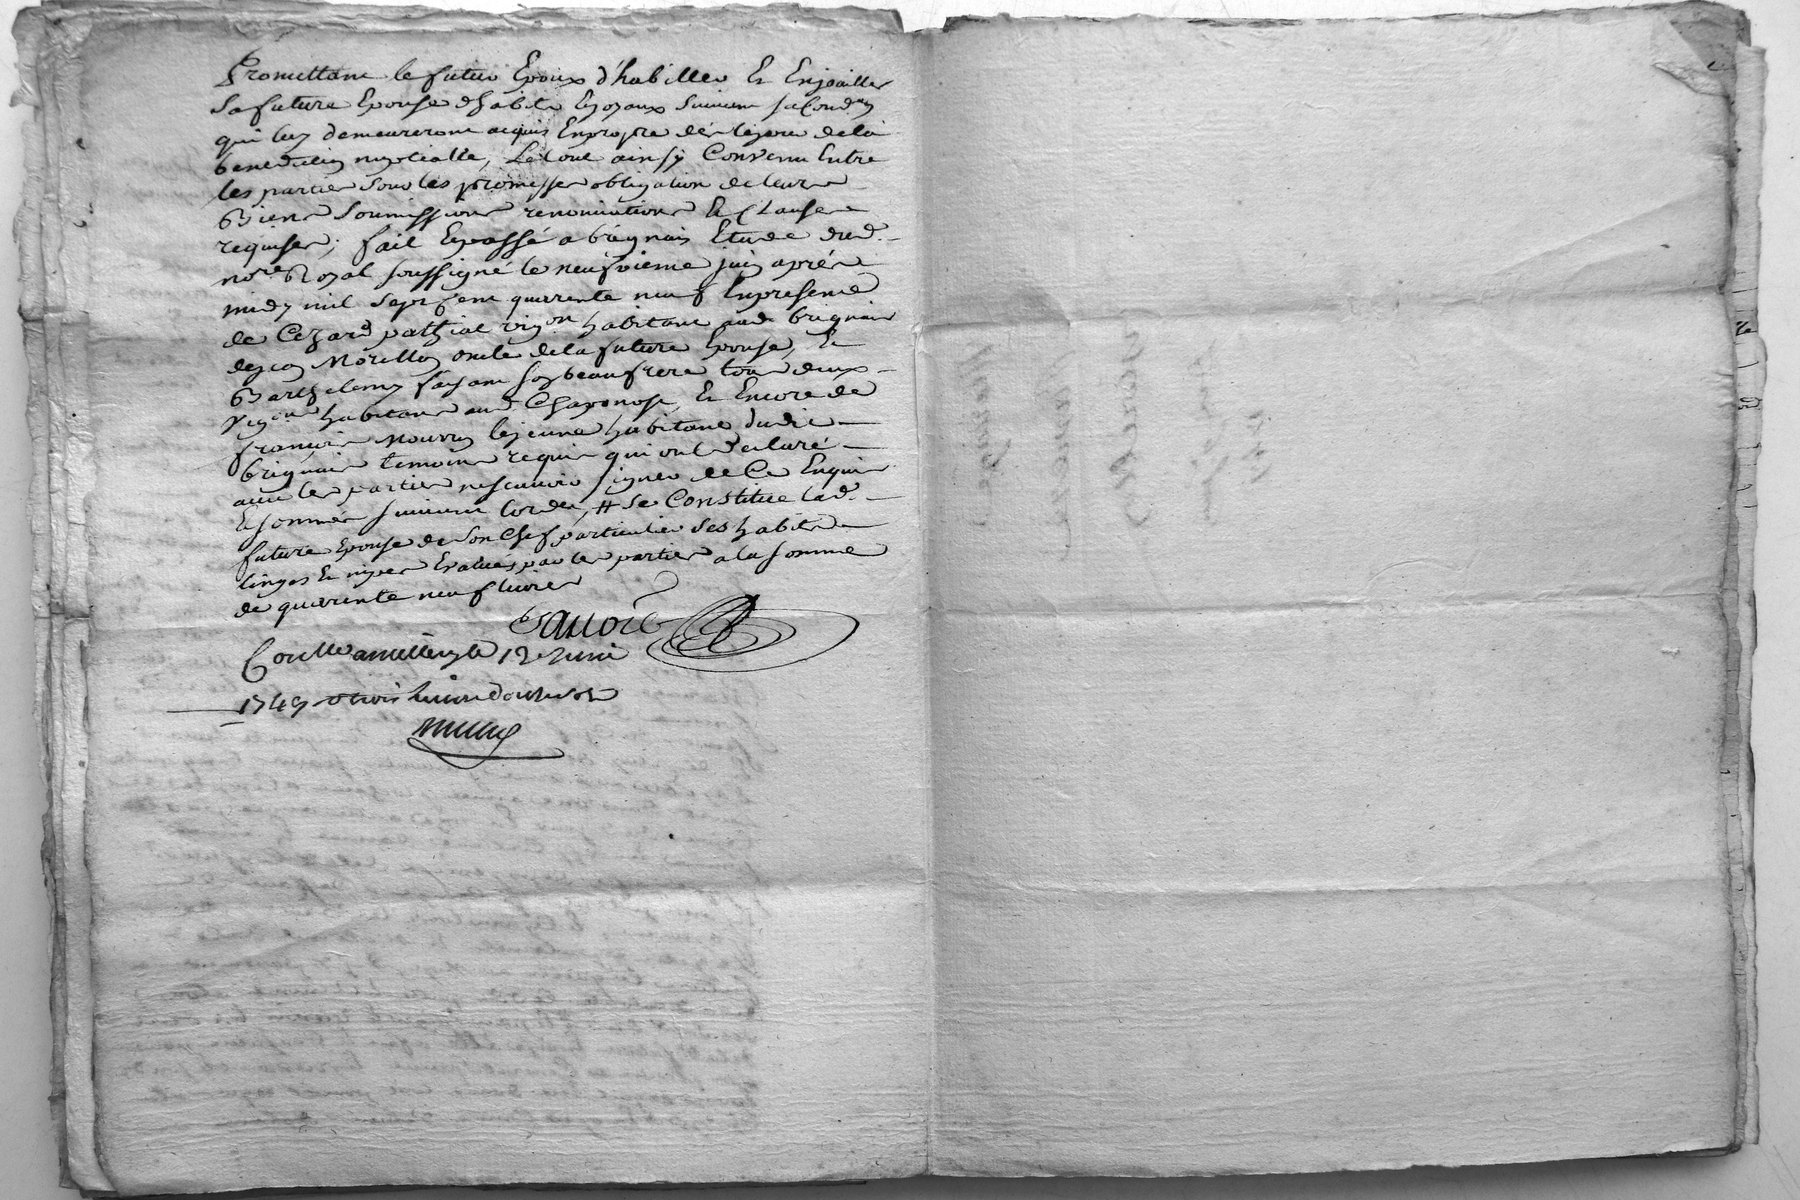 Promettant le futur Epoux d'habiller Et Enjoailler
sa future Epouse d'habits Ejoyaux suivant sa Cond.on
qui luy demeureront acquis Enpropre dès lheure dela
benediction nuptialle, Le tout ainsy Convenu Entre
les parties sous les promesses obligation de leurs
Biens soumissions renonciations Et Clauses
requises; fait Epassé a brignais Etude dud.
no.re Royal soussigné le neufvieme juin après
midy mil sept Cent quarente neuf Enpresence
de Cezard vig.on habitant aud. brignais
Morillon oncle dela future Epouse, Et
Barthelemy fayant son beaufrere tous deux
vig.ons habitans aud. Chaponost, Et Encore de
françois Mourin lejeune habitant dudit
brignais temoins requis qui ont declaré
avec les parties nesçavoir signer de Ce Enquis
Esommés suivant lordce, # se Constitue lad.
future Epouse de son Chef particulier ses habits
linges Et nipes Evalués par les parties a la somme
de quarente neuf livres
Conllé amillery le 12e Juin
1749